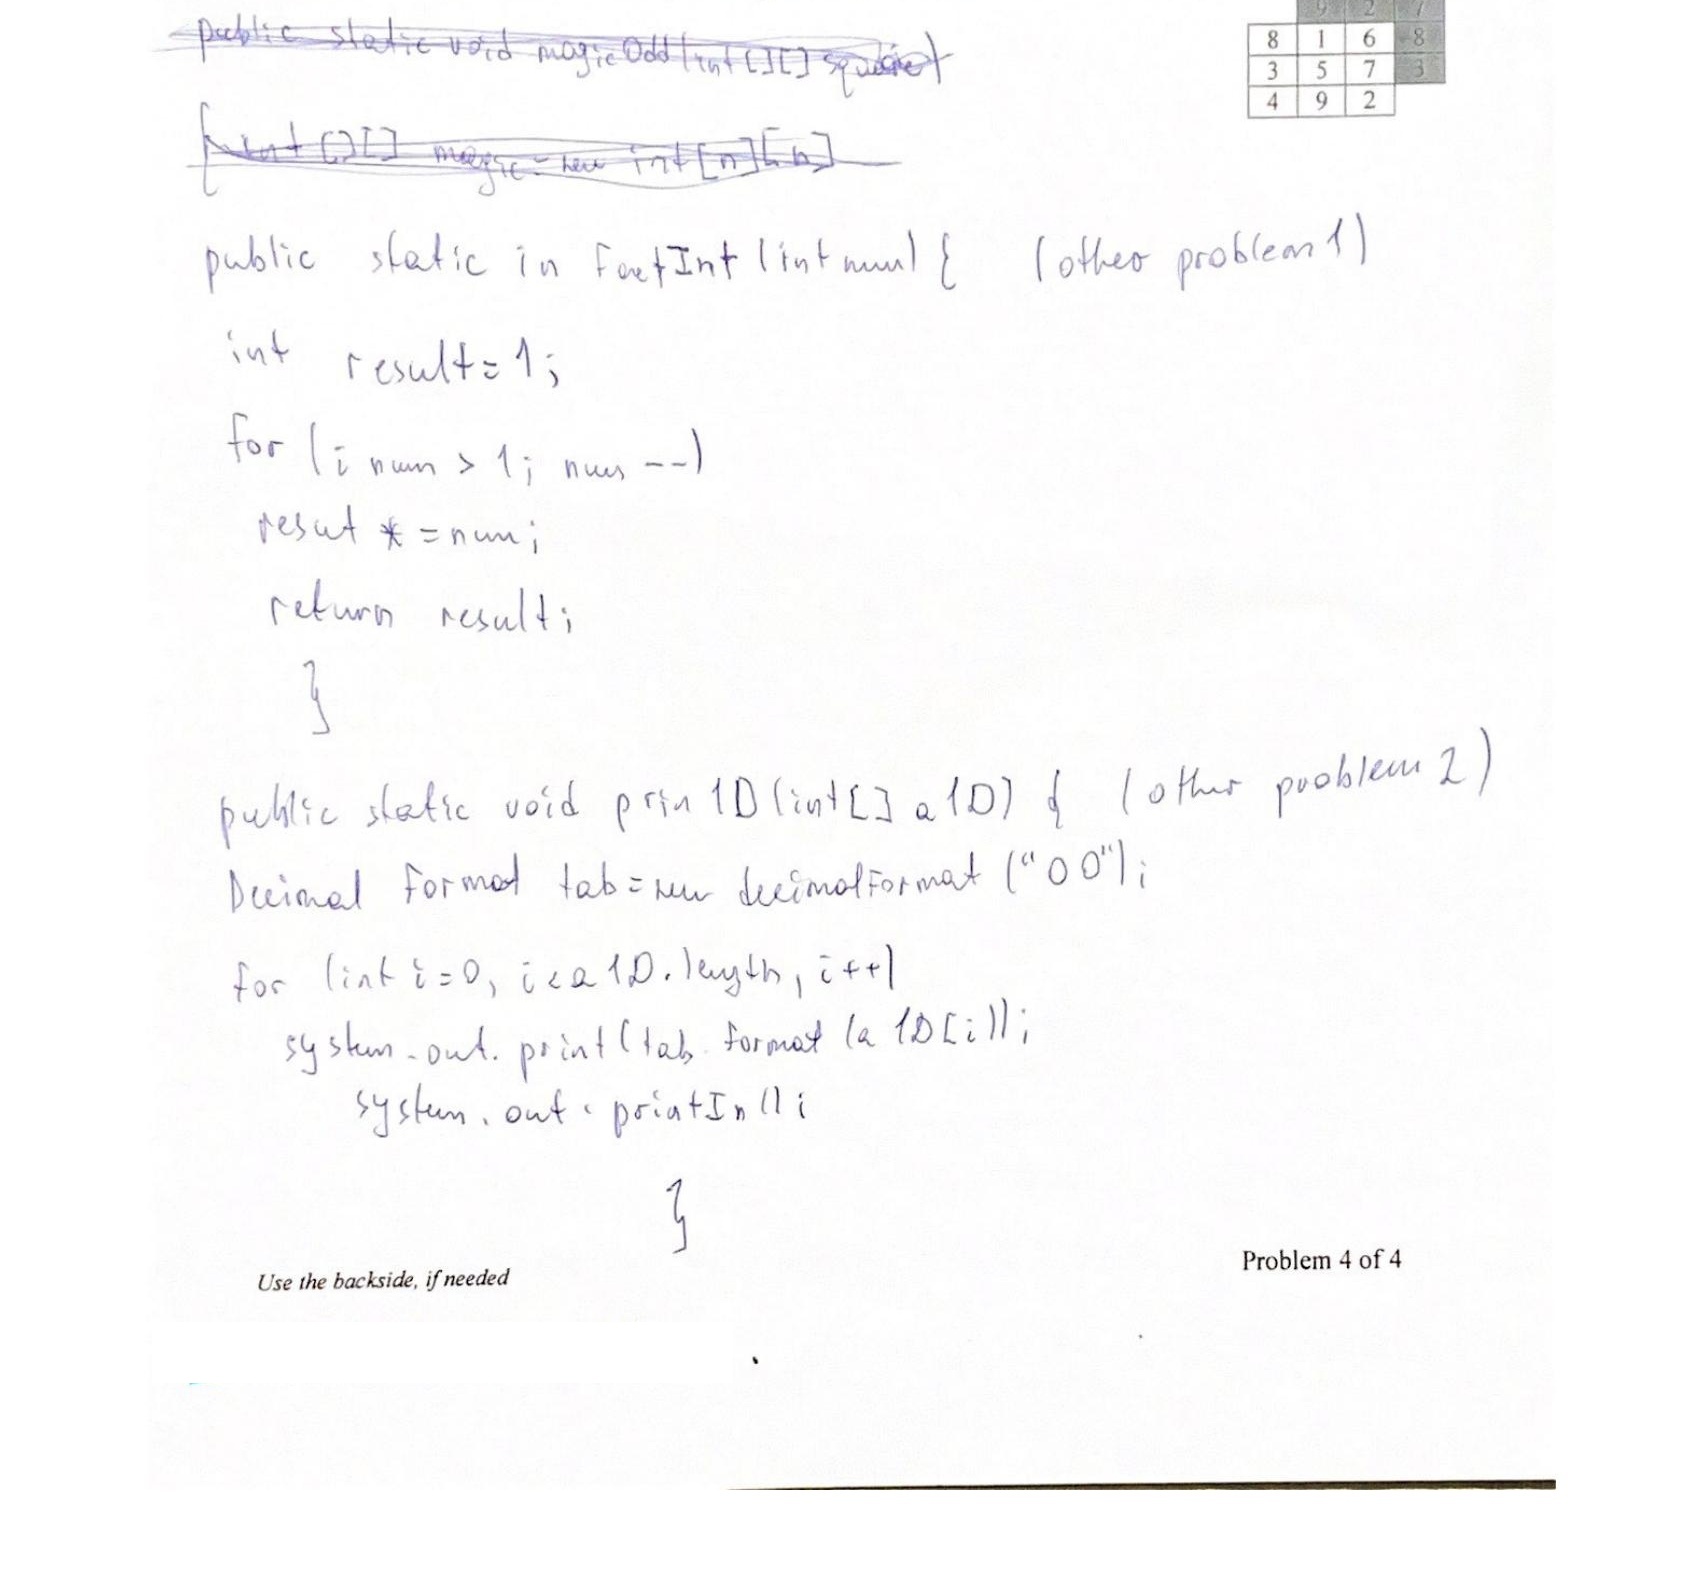 9 2 7
public static void magicOdd(int[][] square)
8 1 6 8
3 5 7 3
4 9 2
{ int [][] magic = new int[n][n]
public static in FactInt (int num) { (other problem 1)
int result = 1;
for (; num > 1; num --)
resut * = num;
return result;
}
public static void prin 1D (int[] a1D) { (other problem 2)
Decimal Format tab = new decimalFormat ("00");
for (int i=0, i<a1D.length, i++)
system.out.print(tab.format (a1D[i]);
system.out.printIn();
}
Use the backside, if needed
Problem 4 of 4